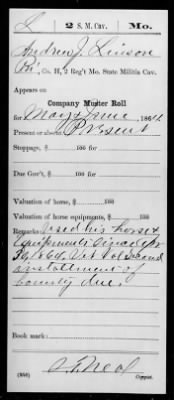 L | 2 S. M. Cav. | Mo.
Andrew J. Linson
Pvt, Co. H, 2 Reg't Mo. State Militia Cav.
Appears on
Company Muster Roll
for May & June, 1864.
Present or absent Present
Stoppage, $ 100 for
Due Gov't, $ 100 for
Valuation of horse, $ 100
Valuation of horse equipments, $ 100
Remarks: Used his horse &
Equipments since Apr
30/64. Vet Vol second
installment of
bounty due.
Book mark:
(856)
Copyist.